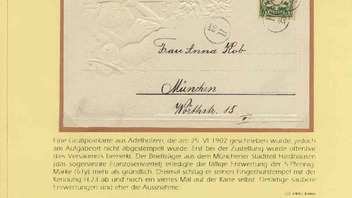 Frau Anna Kob.
München
Wörthstr. 15
Eine Grußpostkarte aus Adelholzen, die am 25. VI 1902 geschrieben wurde, jedoch
am Aufgabeort nicht abgestempelt wurde. Erst bei der Zustellung wurde offenbar
das Versäumnis bemerkt. Der Briefträger aus dem Münchener Stadtteil Haidhausen
(das sogenannte Franzosenviertel) erledigte die fällige Entwertung der 5 Pfennig-
Marke (61y) mehr als gründlich. Dreimal schlug er seinen Fingerhutstempel mit der
Kennung II.23 ab und noch ein viertes Mal auf der Karte selbst. Derartige saubere
Entwertungen sind eher die Ausnahme.